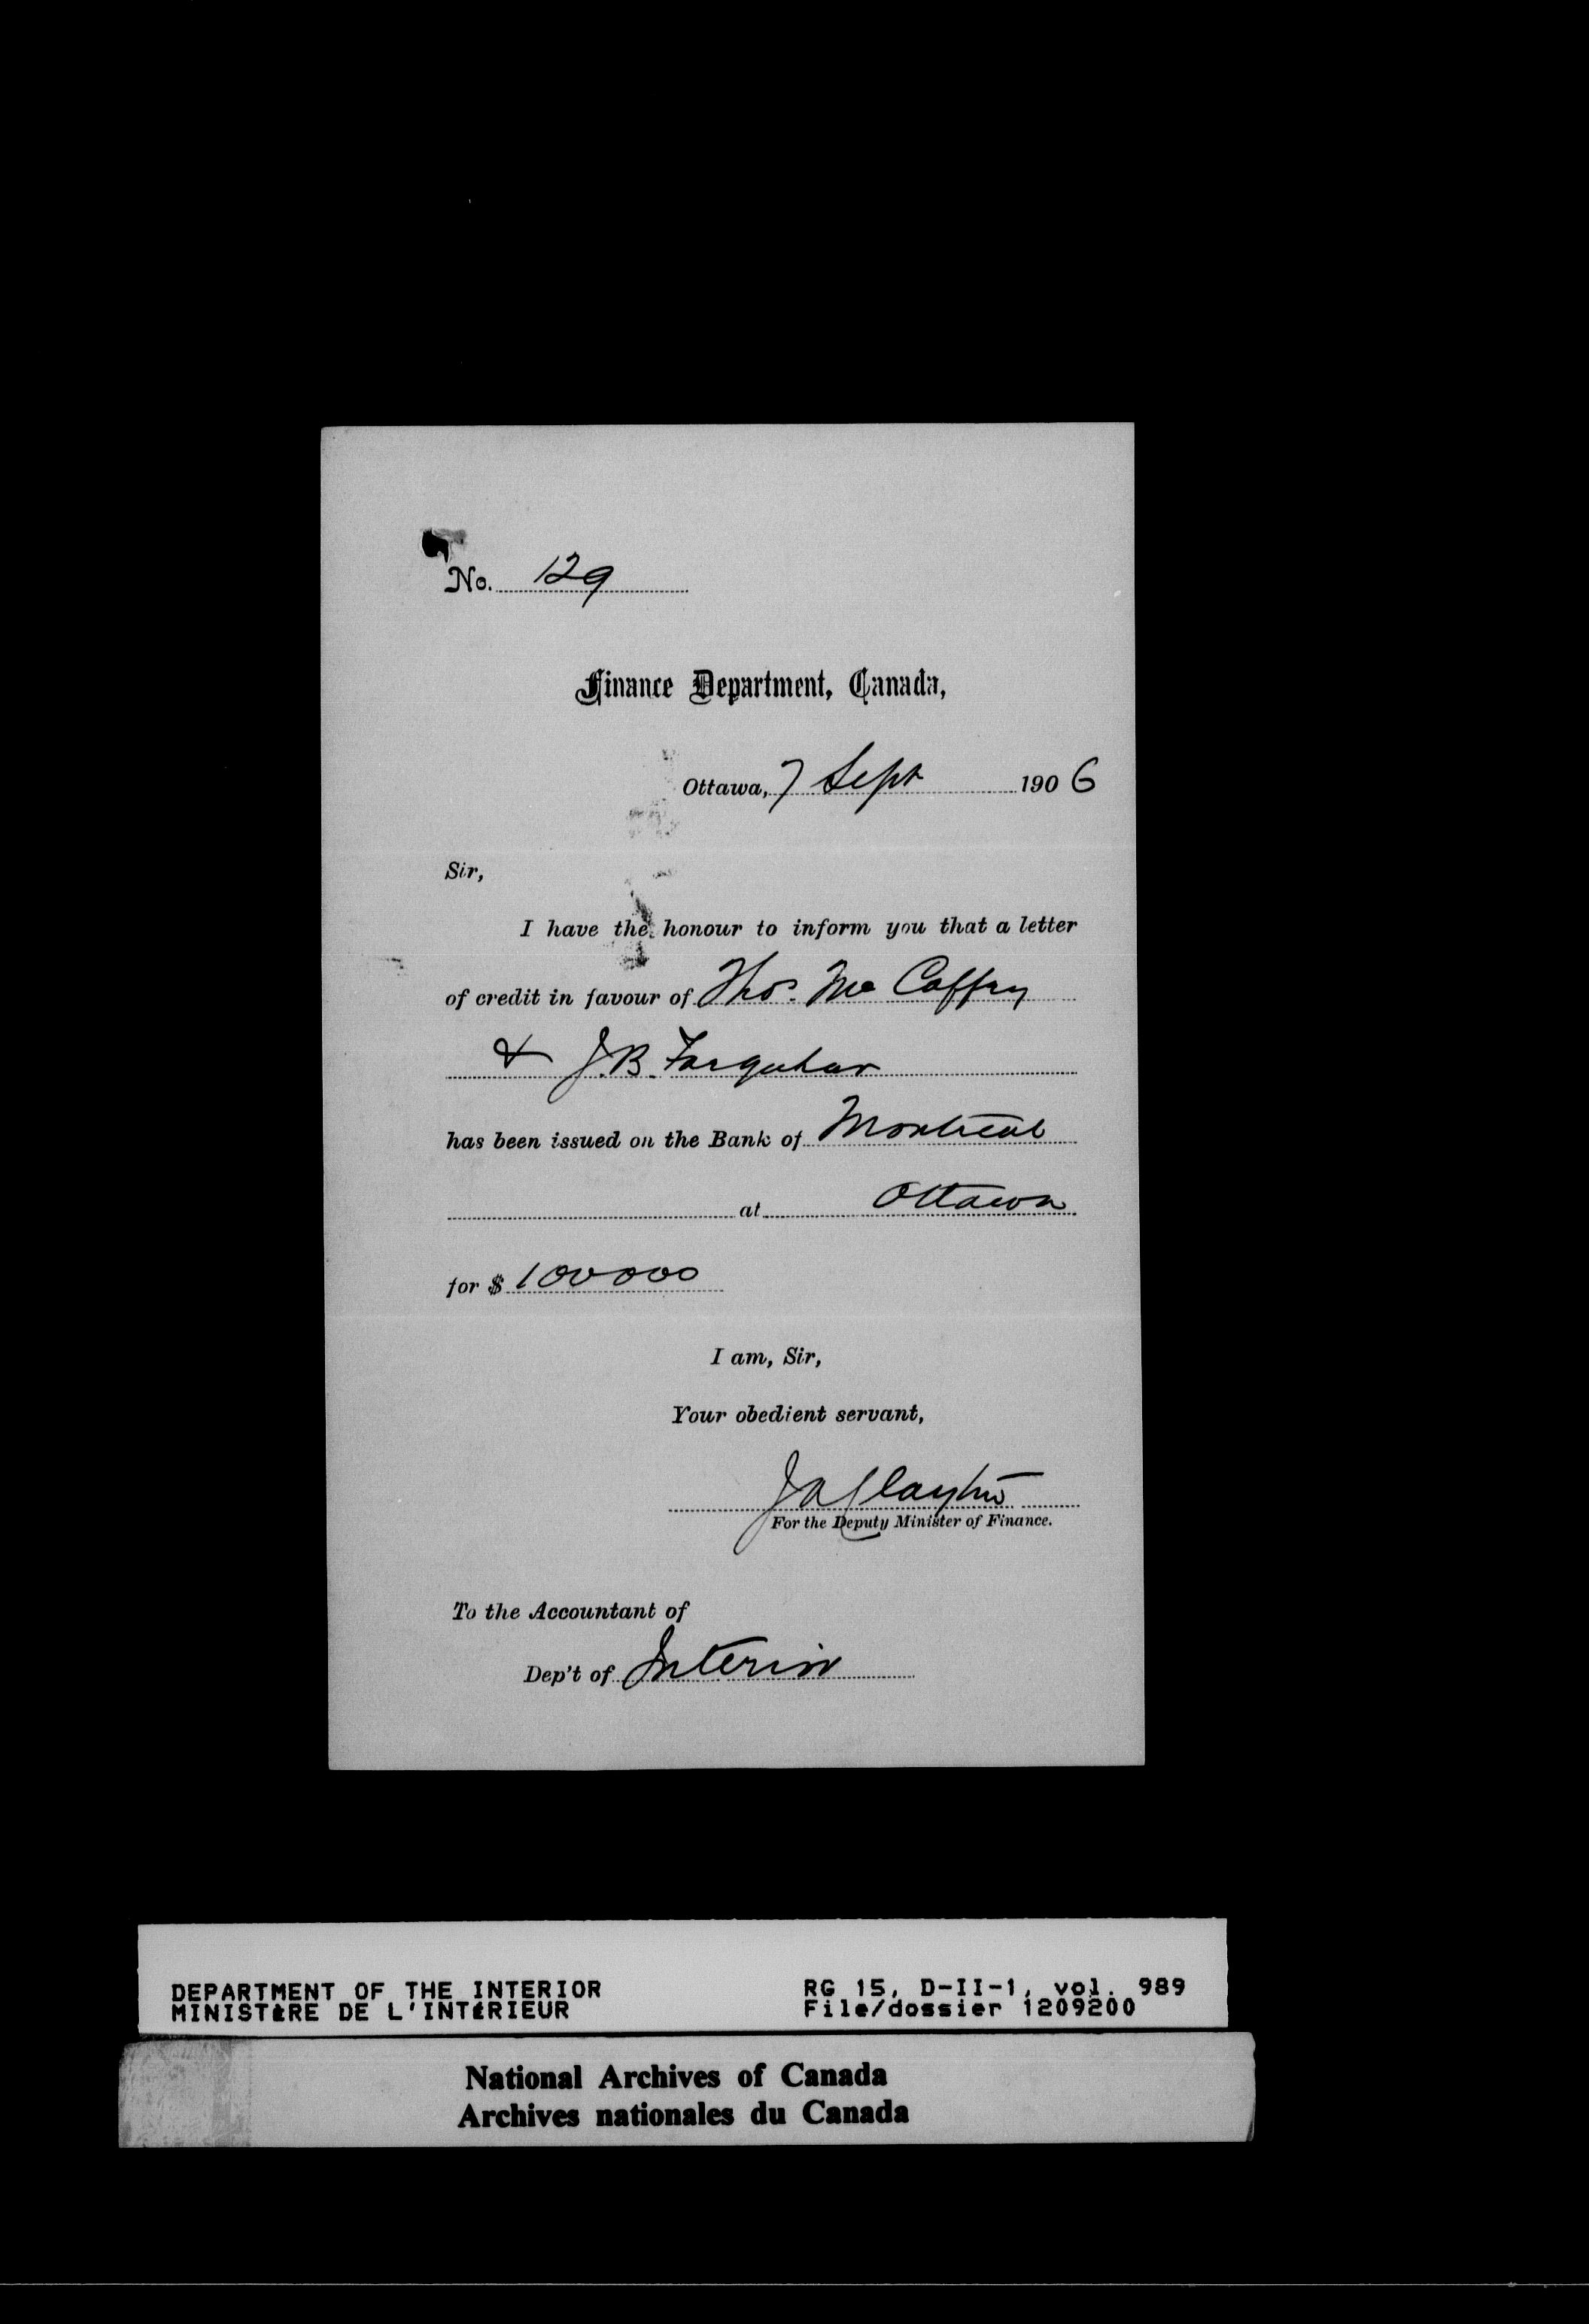 No. 129
Finance Department, Canada,
Ottawa, 7 Sept 1906
Sir,
I have the honour to inform you that a letter
of credit in favour of Thos. Mc Caffry
& J.B. Farquhar
has been issued on the Bank of Montreal
at Ottawa
for $ 100000
I am, Sir,
Your obedient servant,
JAClayton
For the Deputy Minister of Finance.
To the Accountant of
Dep't of Interior
DEPARTMENT OF THE INTERIOR
MINISTÈRE DE L'INTÉRIEUR
RG 15, D-II-1, vol. 989
File/dossier 1209200
National Archives of Canada
Archives nationales du Canada